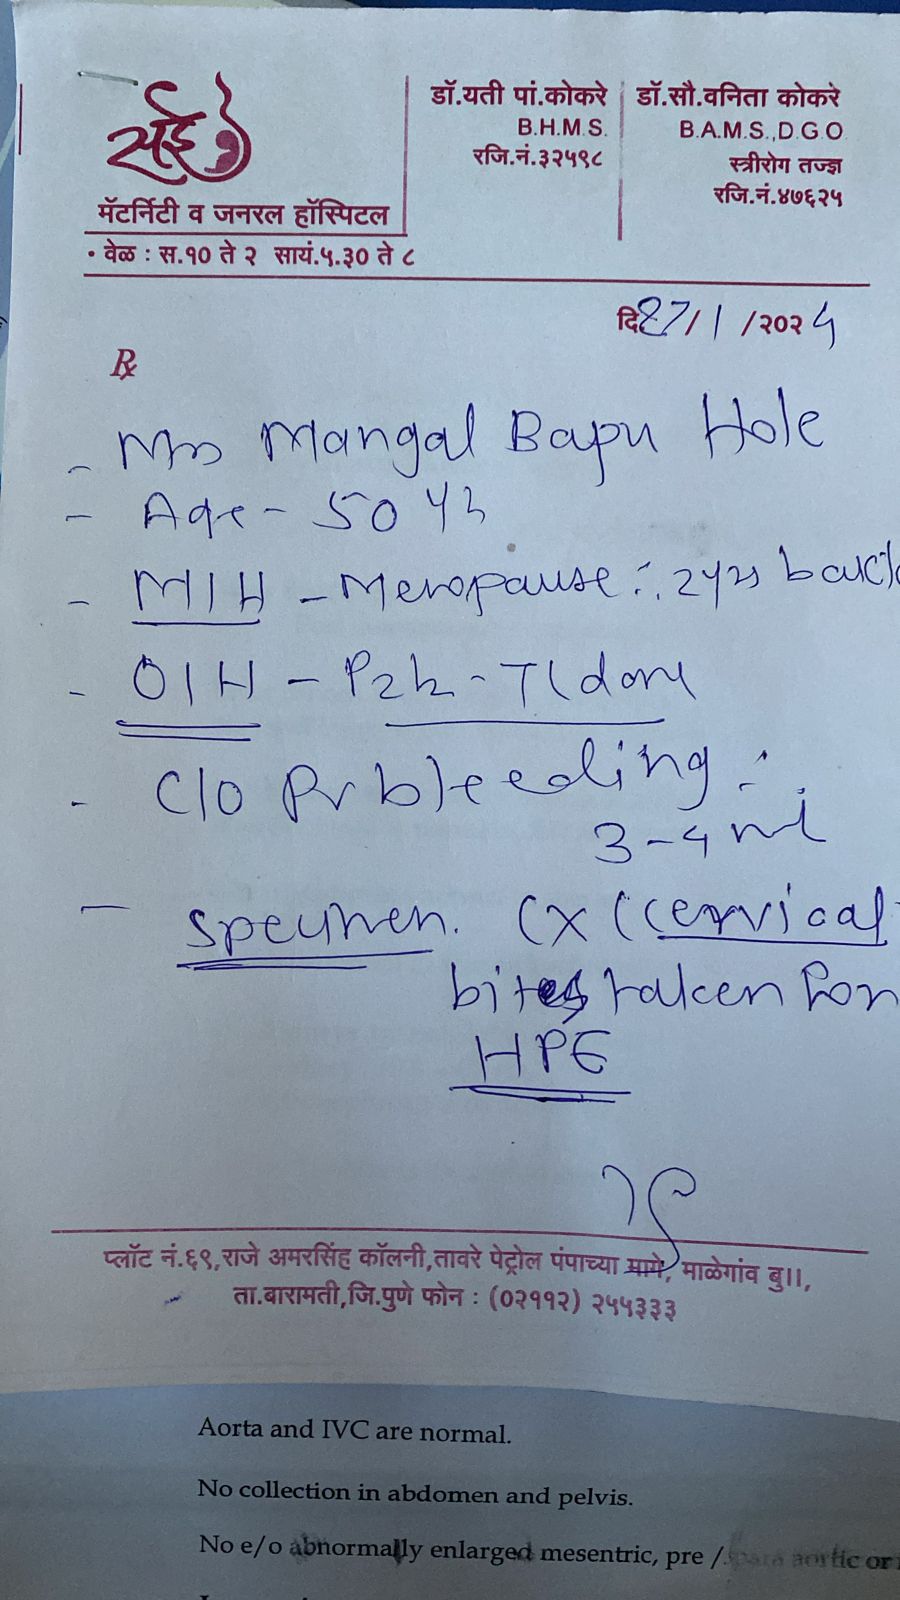 सई
मॅटर्निटी व जनरल हॉस्पिटल
• वेळ : स.१० ते २ सायं.५.३० ते ८
डॉ.यती पां.कोकरे
B.H.M.S.
रजि.नं.३२५९८
डॉ.सौ.वनिता कोकरे
B.A.M.S.,D.G.O.
स्त्रीरोग तज्ज्ञ
रजि.नं.४७६२५
दि 27/1/२०२4
℞
- Mrs Mangal Bapu Hole
- Age - 50 yrs
- M/H - Menopause : 2yrs back
- O/H - P2L2 - TL done
- C/O PV bleeding :
3-4 m
- specimen. CX (cervical
bites taken for
HPE
प्लॉट नं.६९,राजे अमरसिंह कॉलनी,तावरे पेट्रोल पंपाच्या मागे, माळेगांव बु॥,
ता.बारामती,जि.पुणे फोन : (०२११२) २५५३३३
Aorta and IVC are normal.
No collection in abdomen and pelvis.
No e/o abnormally enlarged mesentric, pre / para aortic or